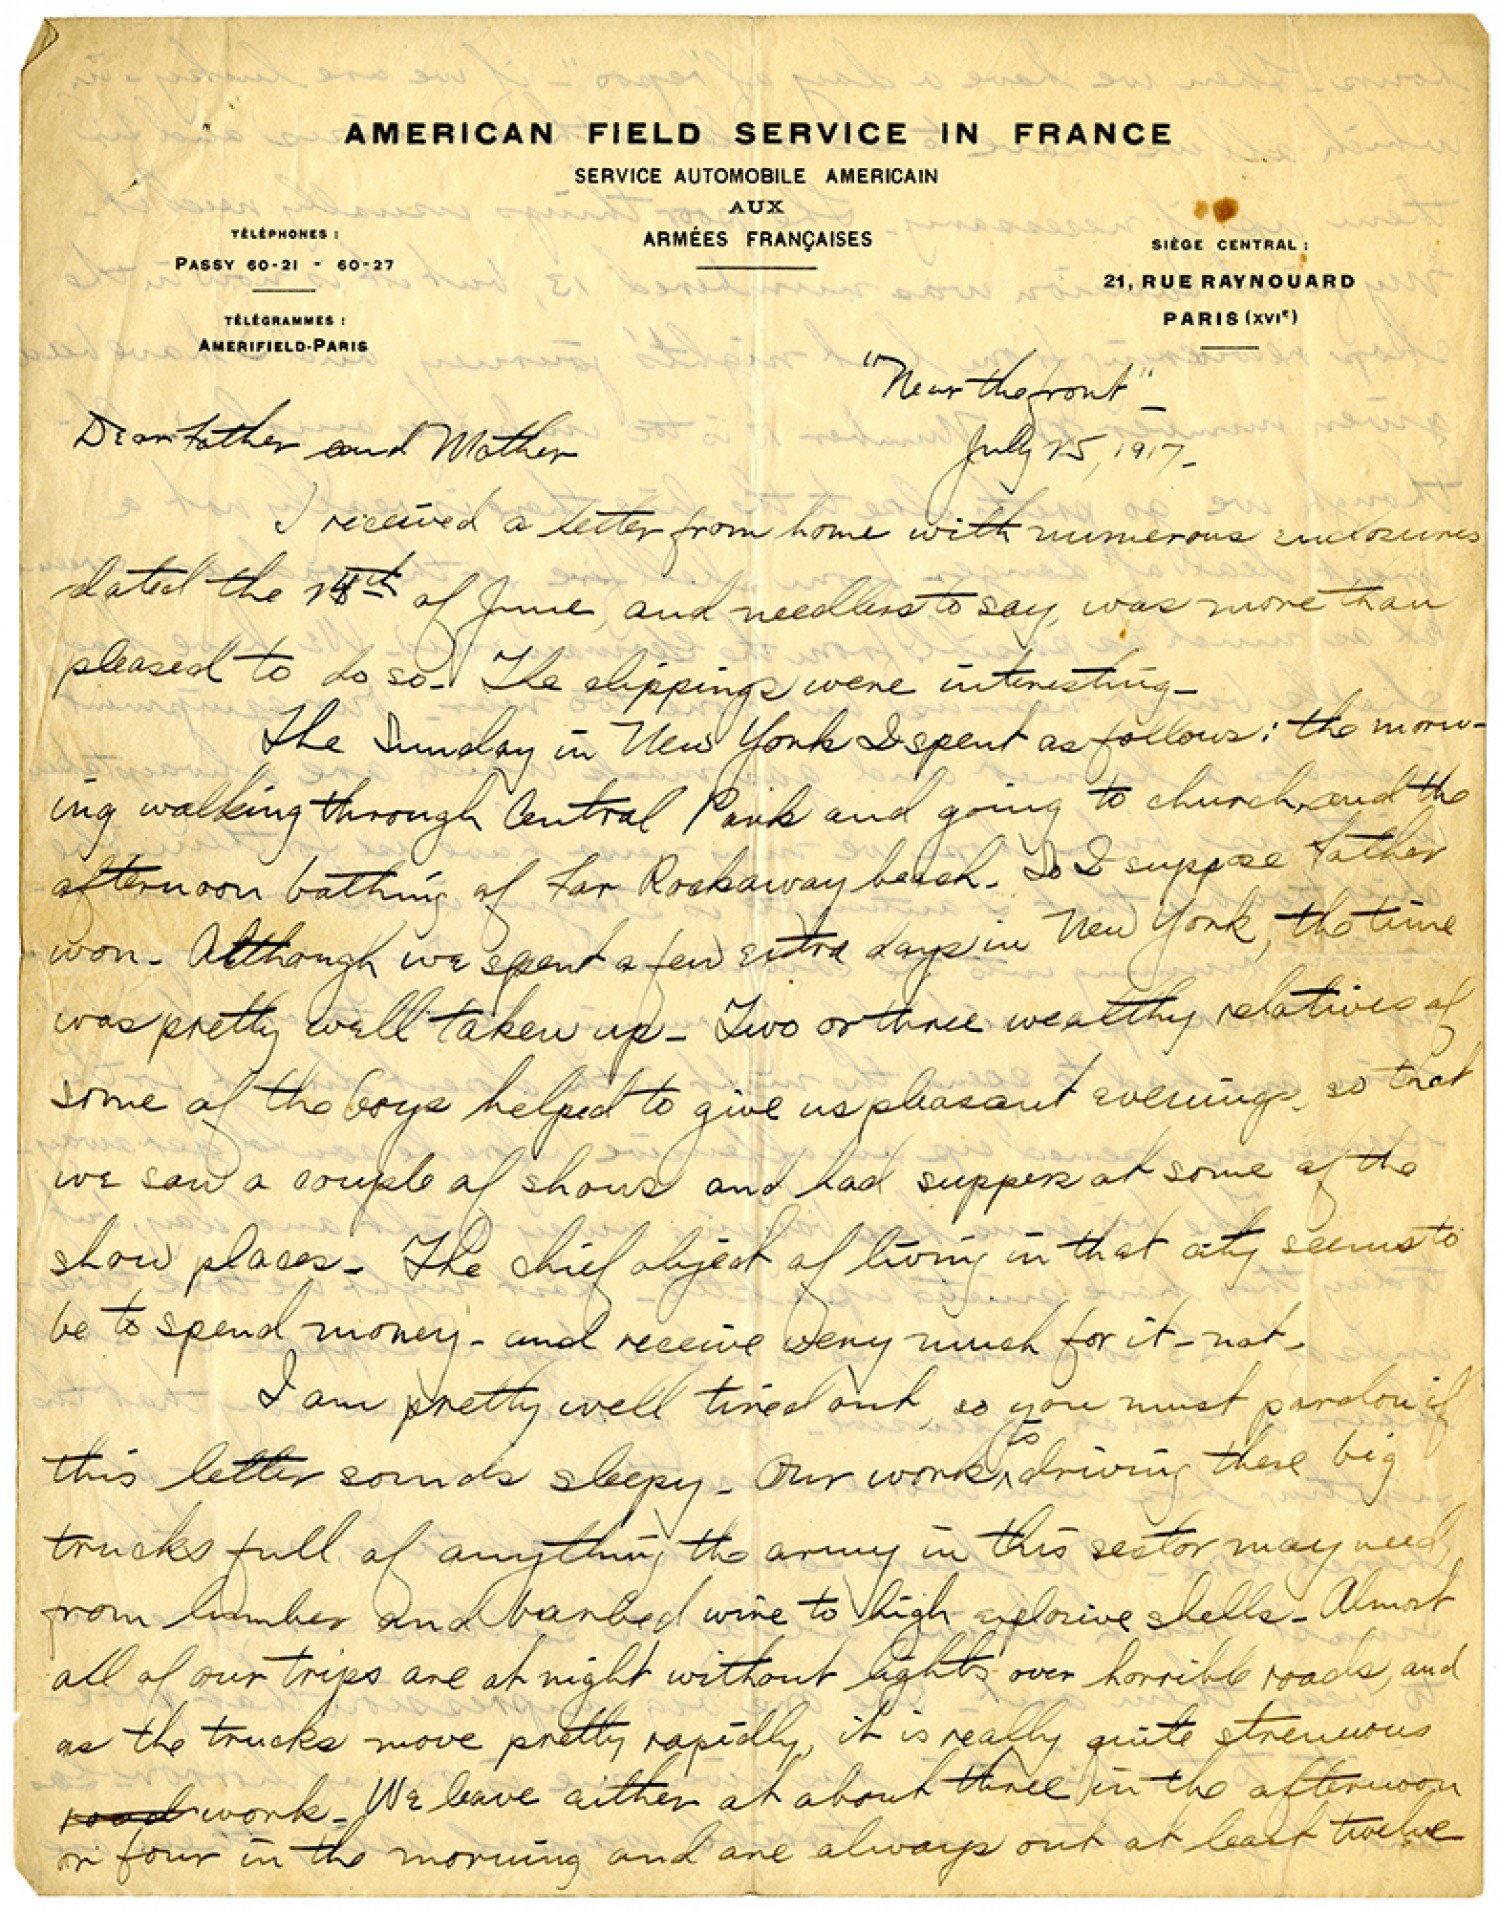 AMERICAN FIELD SERVICE IN FRANCE
SERVICE AUTOMOBILE AMERICAIN
AUX
ARMÉES FRANÇAISES
TÉLÉPHONES :
PASSY 60-21 - 60-27
TÉLÉGRAMMES :
AMERIFIELD-PARIS
SIÈGE CENTRAL :
21, RUE RAYNOUARD
PARIS (XVIe)
"Near the front" -
July 25, 1917 -
Dear Father and Mother
I received a letter from home with numerous enclosures
dated the of June, and needless to say, was more than
pleased to do so - The clippings were interesting -
The Sunday in New York I spent as follows: the morn-
ing walking through Central Park and going to church, and the
afternoon bathing at Far Rockaway beach - So I suppose Father
won - Although we spent a few extra days in New York, the time
was pretty well taken up - Two or three wealthy relatives of
some of the boys helped to give us pleasant evenings, so that
we saw a couple of shows and had suppers at some of the
show places - The chief object of living in that city seems to
be to spend money - and receive very much for it - not -
I am pretty well tired out, so you must pardon if
this letter sounds sleepy - Our work is driving these big
trucks full of anything the army in this sector may need,
from lumber and barbed wire to high explosive shells - Almost
all of our trips are at night without lights over horrible roads, and
as the trucks move pretty rapidly, it is really quite strenuous
road work - We leave either at about three in the afternoon
or four in the morning and are always out at least twelve